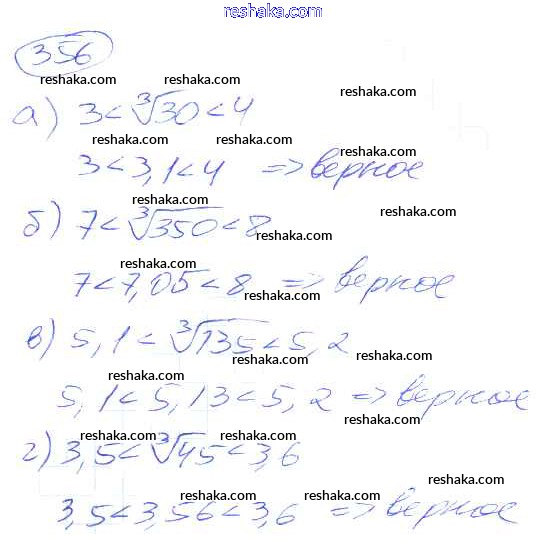 reshaka.com
356
reshaka.com reshaka.com
reshaka.com
а) 3 < ∛30 < 4
reshaka.com reshaka.com
reshaka.com
3 < 3,1 < 4 => верное
reshaka.com
reshaka.com
б) 7 < ∛350 < 8
reshaka.com
reshaka.com
7 < 7,05 < 8 => верное
reshaka.com
reshaka.com
в) 5,1 < ∛135 < 5,2
reshaka.com
reshaka.com
reshaka.com
5,1 < 5,13 < 5,2 => верное
reshaka.com
reshaka.com reshaka.com
г) 3,5 < ∛45 < 3,6
reshaka.com
reshaka.com reshaka.com
3,5 < 3,56 < 3,6 => верное
reshaka.com reshaka.com